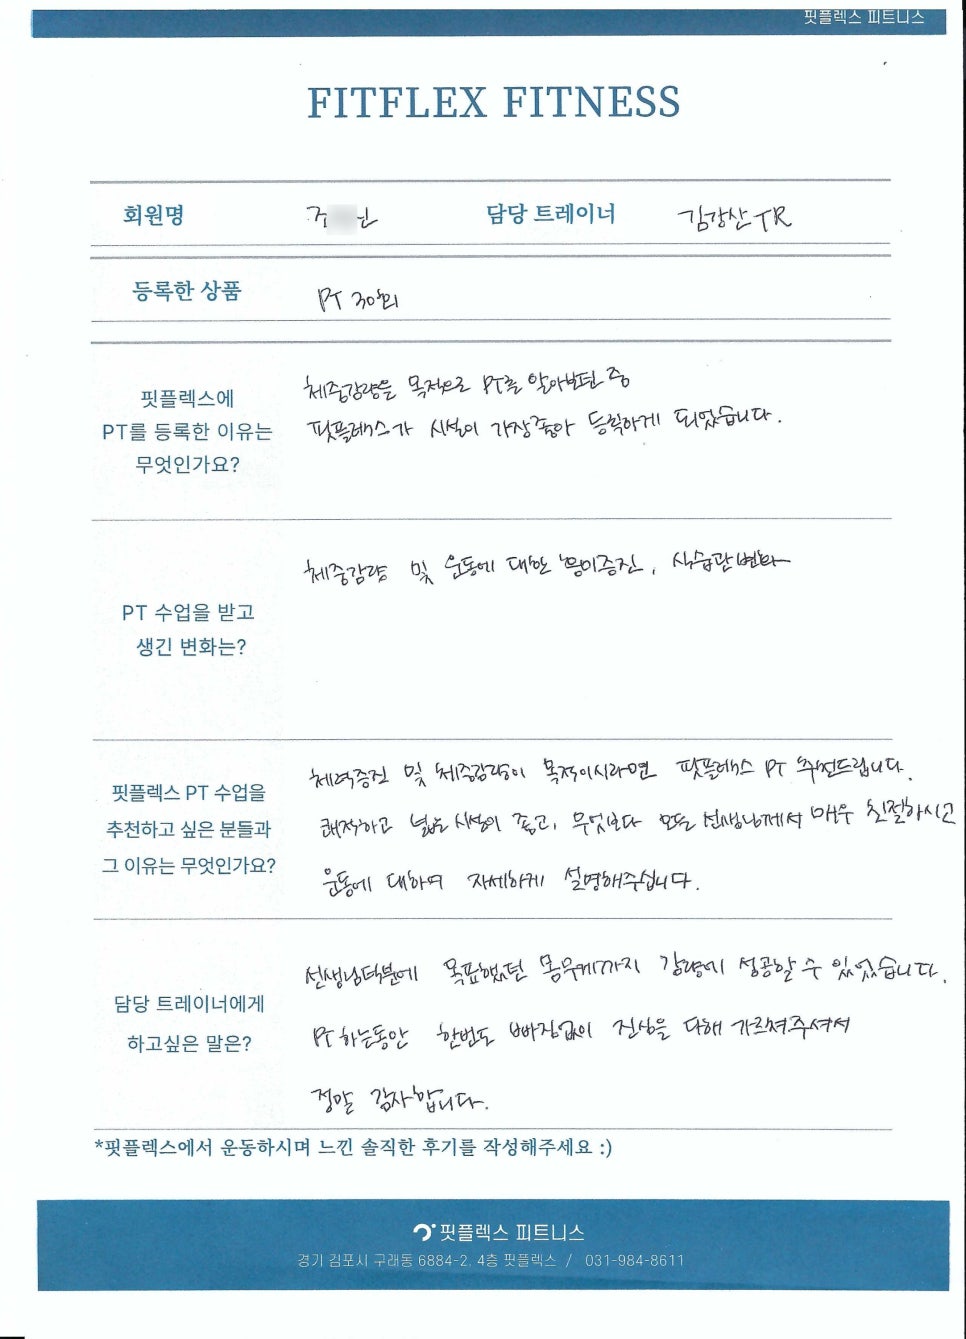 핏플렉스 피트니스
FITFLEX FITNESS
회원명 담당 트레이너 김강산 TR
등록한 상품 PT 30회
핏플렉스에
PT를 등록한 이유는
무엇인가요?
체중감량을 목적으로 PT를 알아보던 중
핏플렉스가 시설이 가장좋아 등록하게 되었습니다.
PT 수업을 받고
생긴 변화는?
체중감량 및 운동에 대한 흥미증진, 식습관변화
핏플렉스 PT 수업을
추천하고 싶은 분들과
그 이유는 무엇인가요?
체력증진 및 체중감량이 목적이시라면 핏플렉스 PT 추천드립니다.
쾌적하고 넓은 시설이 좋고, 무엇보다 모든 선생님께서 매우 친절하시고
운동에 대하여 자세하게 설명해주십니다.
담당 트레이너에게
하고싶은 말은?
선생님덕분에 목표했던 몸무게까지 감량에 성공할 수 있었습니다.
PT 하는동안 한번도 빠짐없이 진심을 다해 가르쳐주셔서
정말 감사합니다.
*핏플렉스에서 운동하시며 느낀 솔직한 후기를 작성해주세요 :)
핏플렉스 피트니스
경기 김포시 구래동 6884-2, 4층 핏플렉스 / 031-984-8611